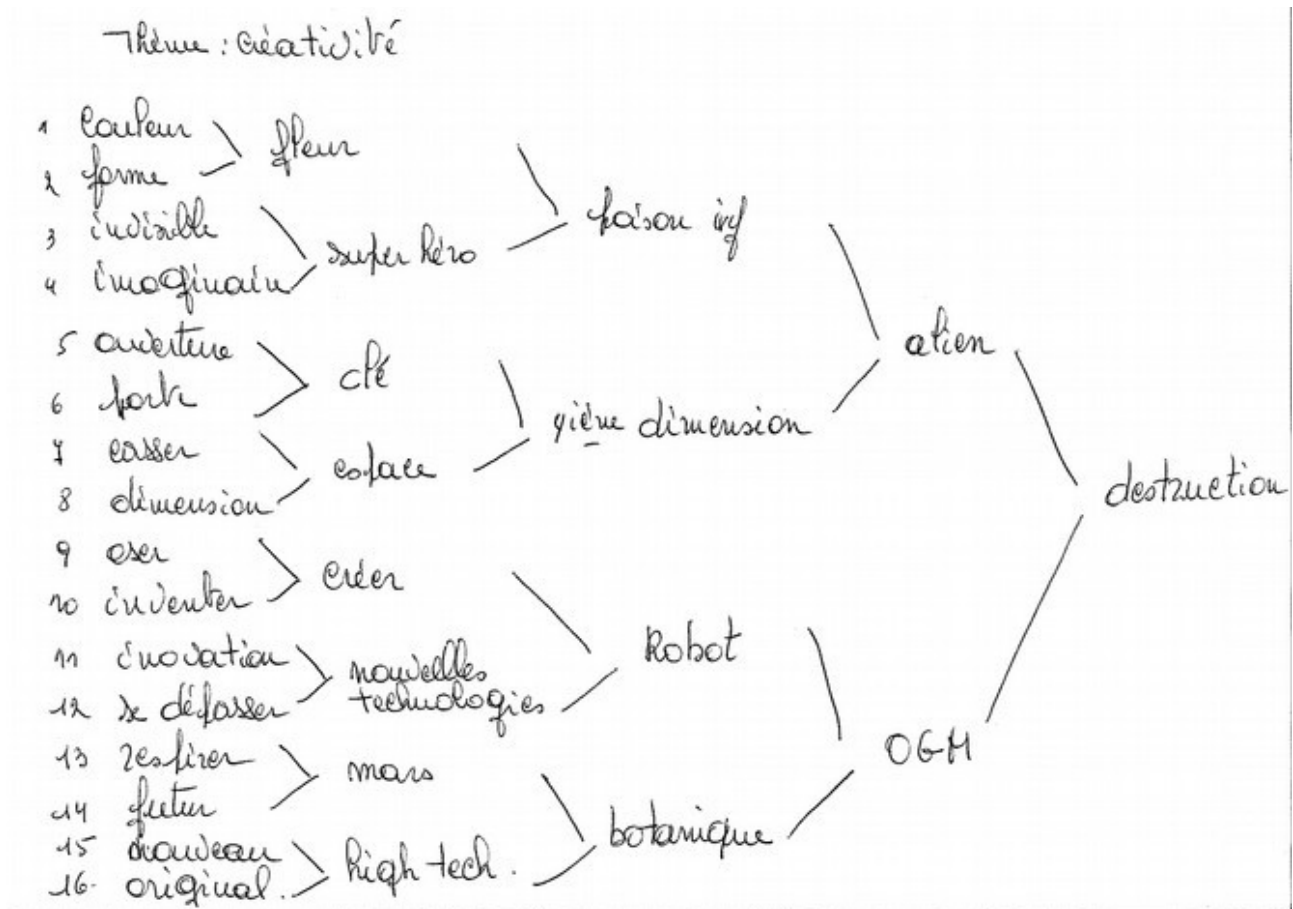 Thème : créativité
1 couleur
2 forme
3 invisible
4 imaginaire
5 ouverture
6 porte
7 casser
8 dimension
9 oser
10 inventer
11 inovation
12 se dépasser
13 respirer
14 futur
15 nouveau
16. original.
fleur
super héro
clé
espace
créer
nouvelles
technologies
mars
high tech.
poison ivy
4ième dimension
Robot
botanique
alien
OGM
destruction